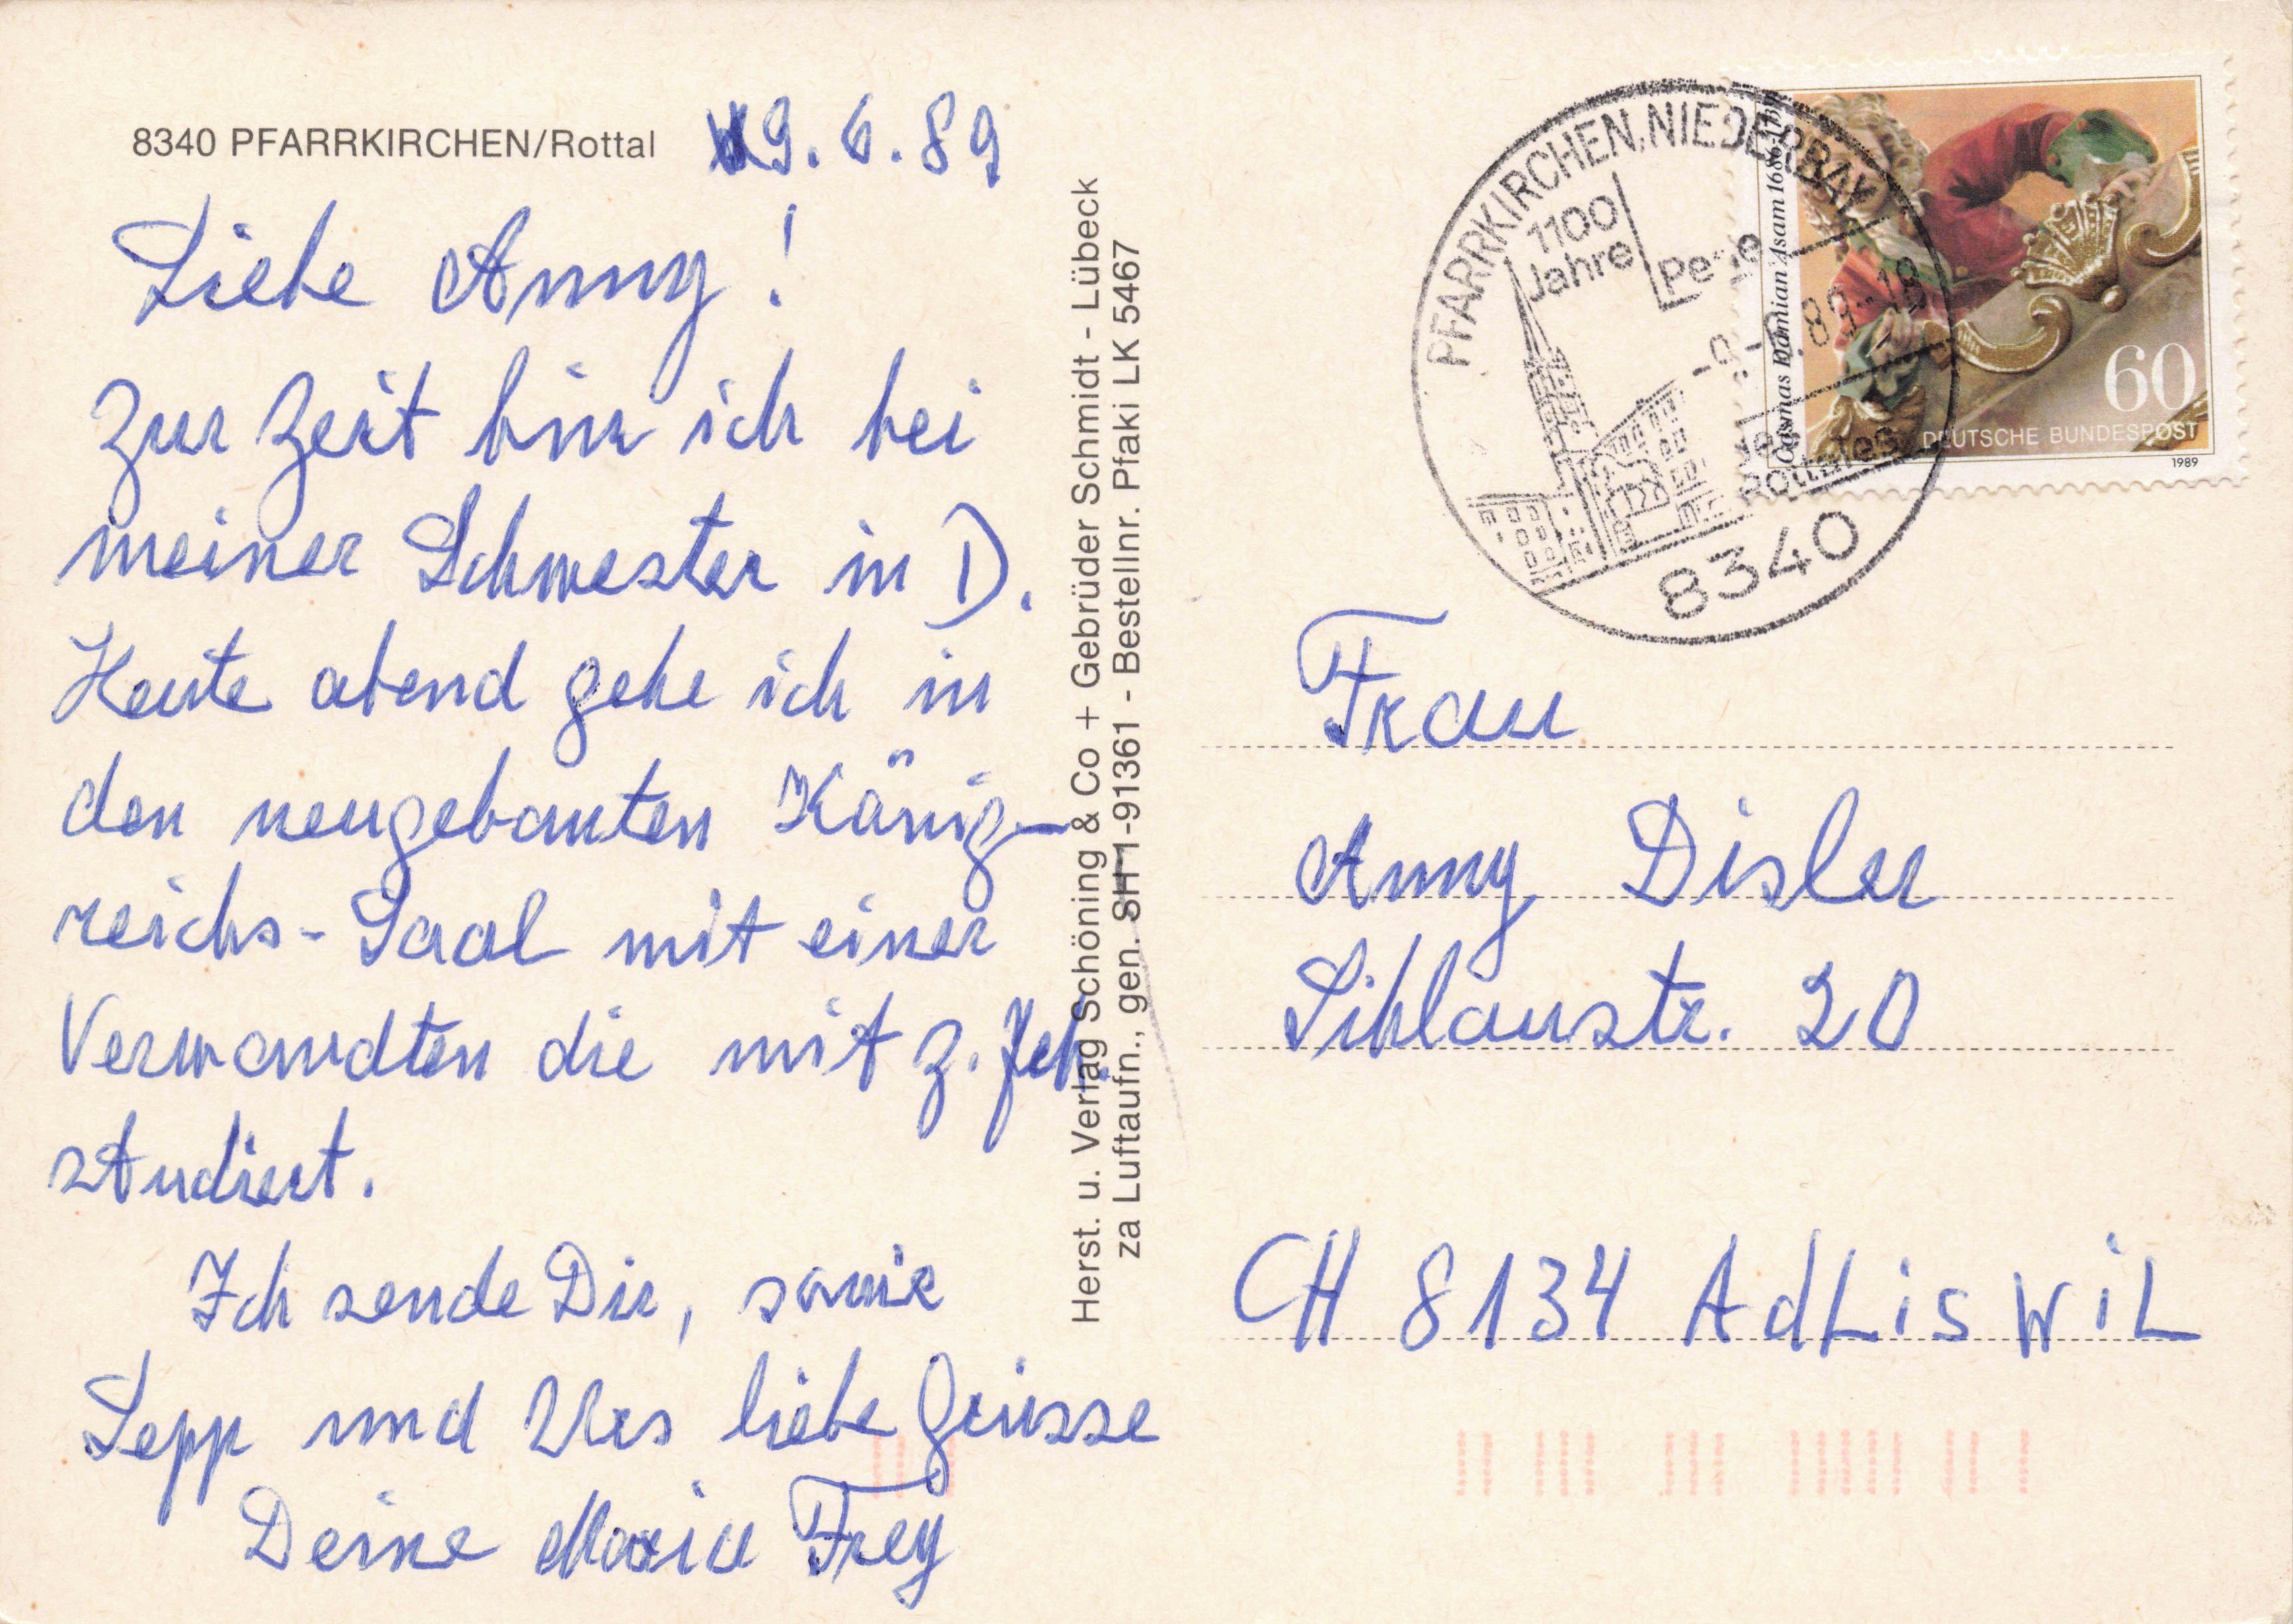 8340 PFARRKIRCHEN/Rottal
9.6.89
Liebe Anny!
Zur Zeit bin ich bei
meiner Schwester in D.
Heute abend gehe ich in
den neugebauten König-
reichs-Saal mit einer
Verwandten die mit Z. Jeh.
studiert.
Ich sende Dir, sowie
Sepp und Urs liebe Grüsse
Deine Maria Frey
Herst. u. Verlag Schöning & Co + Gebrüder Schmidt - Lübeck
za Luftaufn., gen. SH 1-91361 - Bestellnr. Pfaki LK 5467
PFARRKIRCHEN, NIEDERBAY
1100
Jahre
Perle
89-18
des
Rottales
8340
Cosmas Damian Asam 1686-1739
60
DEUTSCHE BUNDESPOST
1989
Frau
Anny Disler
Sihlaustr. 20
CH 8134 AdLiswiL